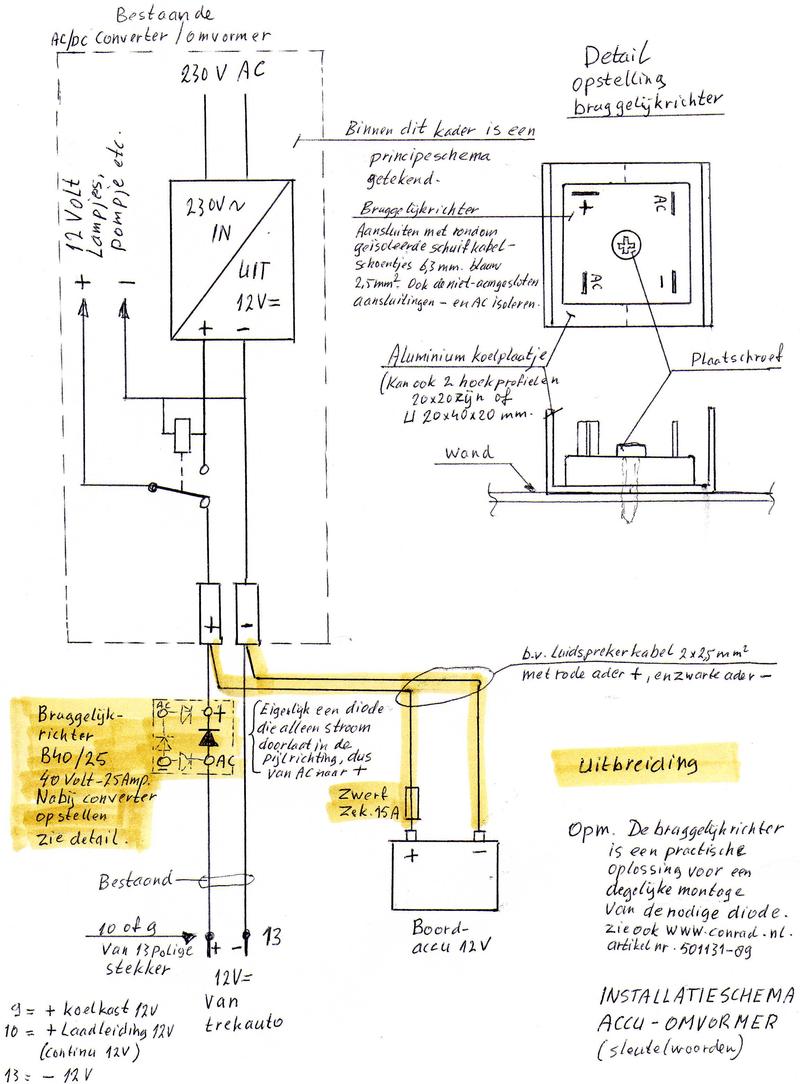 Bestaande
AC/DC Converter / Omvormer
230 V AC
12 Volt
Lampjes,
pompje etc.
+ −
230V~
IN
UIT
12V=
+ −
Binnen dit kader is een
principeschema
getekend.
Bruggelijkrichter
Aansluiten met rondom
geïsoleerde schuifkabel-
schoentjes 6,3 mm. blauw
2,5mm². Ook de niet-aangesloten
aansluitingen - en AC isoleren.
Aluminium koelplaatje
(Kan ook 2 hoekprofielen
20x20 zijn of
U 20x40x20 mm.
Wand
Detail
opstelling
bruggelijkrichter
+ AC
AC −
Plaatschroef
+ −
b.v. Luidsprekerkabel 2x2,5mm²
met rode ader +, en zwarte ader −
Bruggelijk-
richter
B40/25
40 Volt-25Amp.
Nabij converter
opstellen
zie detail.
AC +
− AC
Eigenlijk een diode
die alleen stroom
doorlaat in de
pijlrichting, dus
van AC naar +
Zwerf
Zek. 15A
+ −
Boord-
accu 12V
Uitbreiding
Opm. De bruggelijkrichter
is een practische
oplossing voor een
degelijke montage
van de nodige diode.
zie ook www.conrad.nl.
artikel nr. 501131-89
Bestaand
10 of 9
Van 13 polige
stekker
+ − 13
12V=
Van
trekauto
9 = + koelkast 12V
10 = + Laadleiding 12V
(continu 12V)
13 = − 12V
INSTALLATIESCHEMA
ACCU-OMVORMER
(sleutelwoorden)